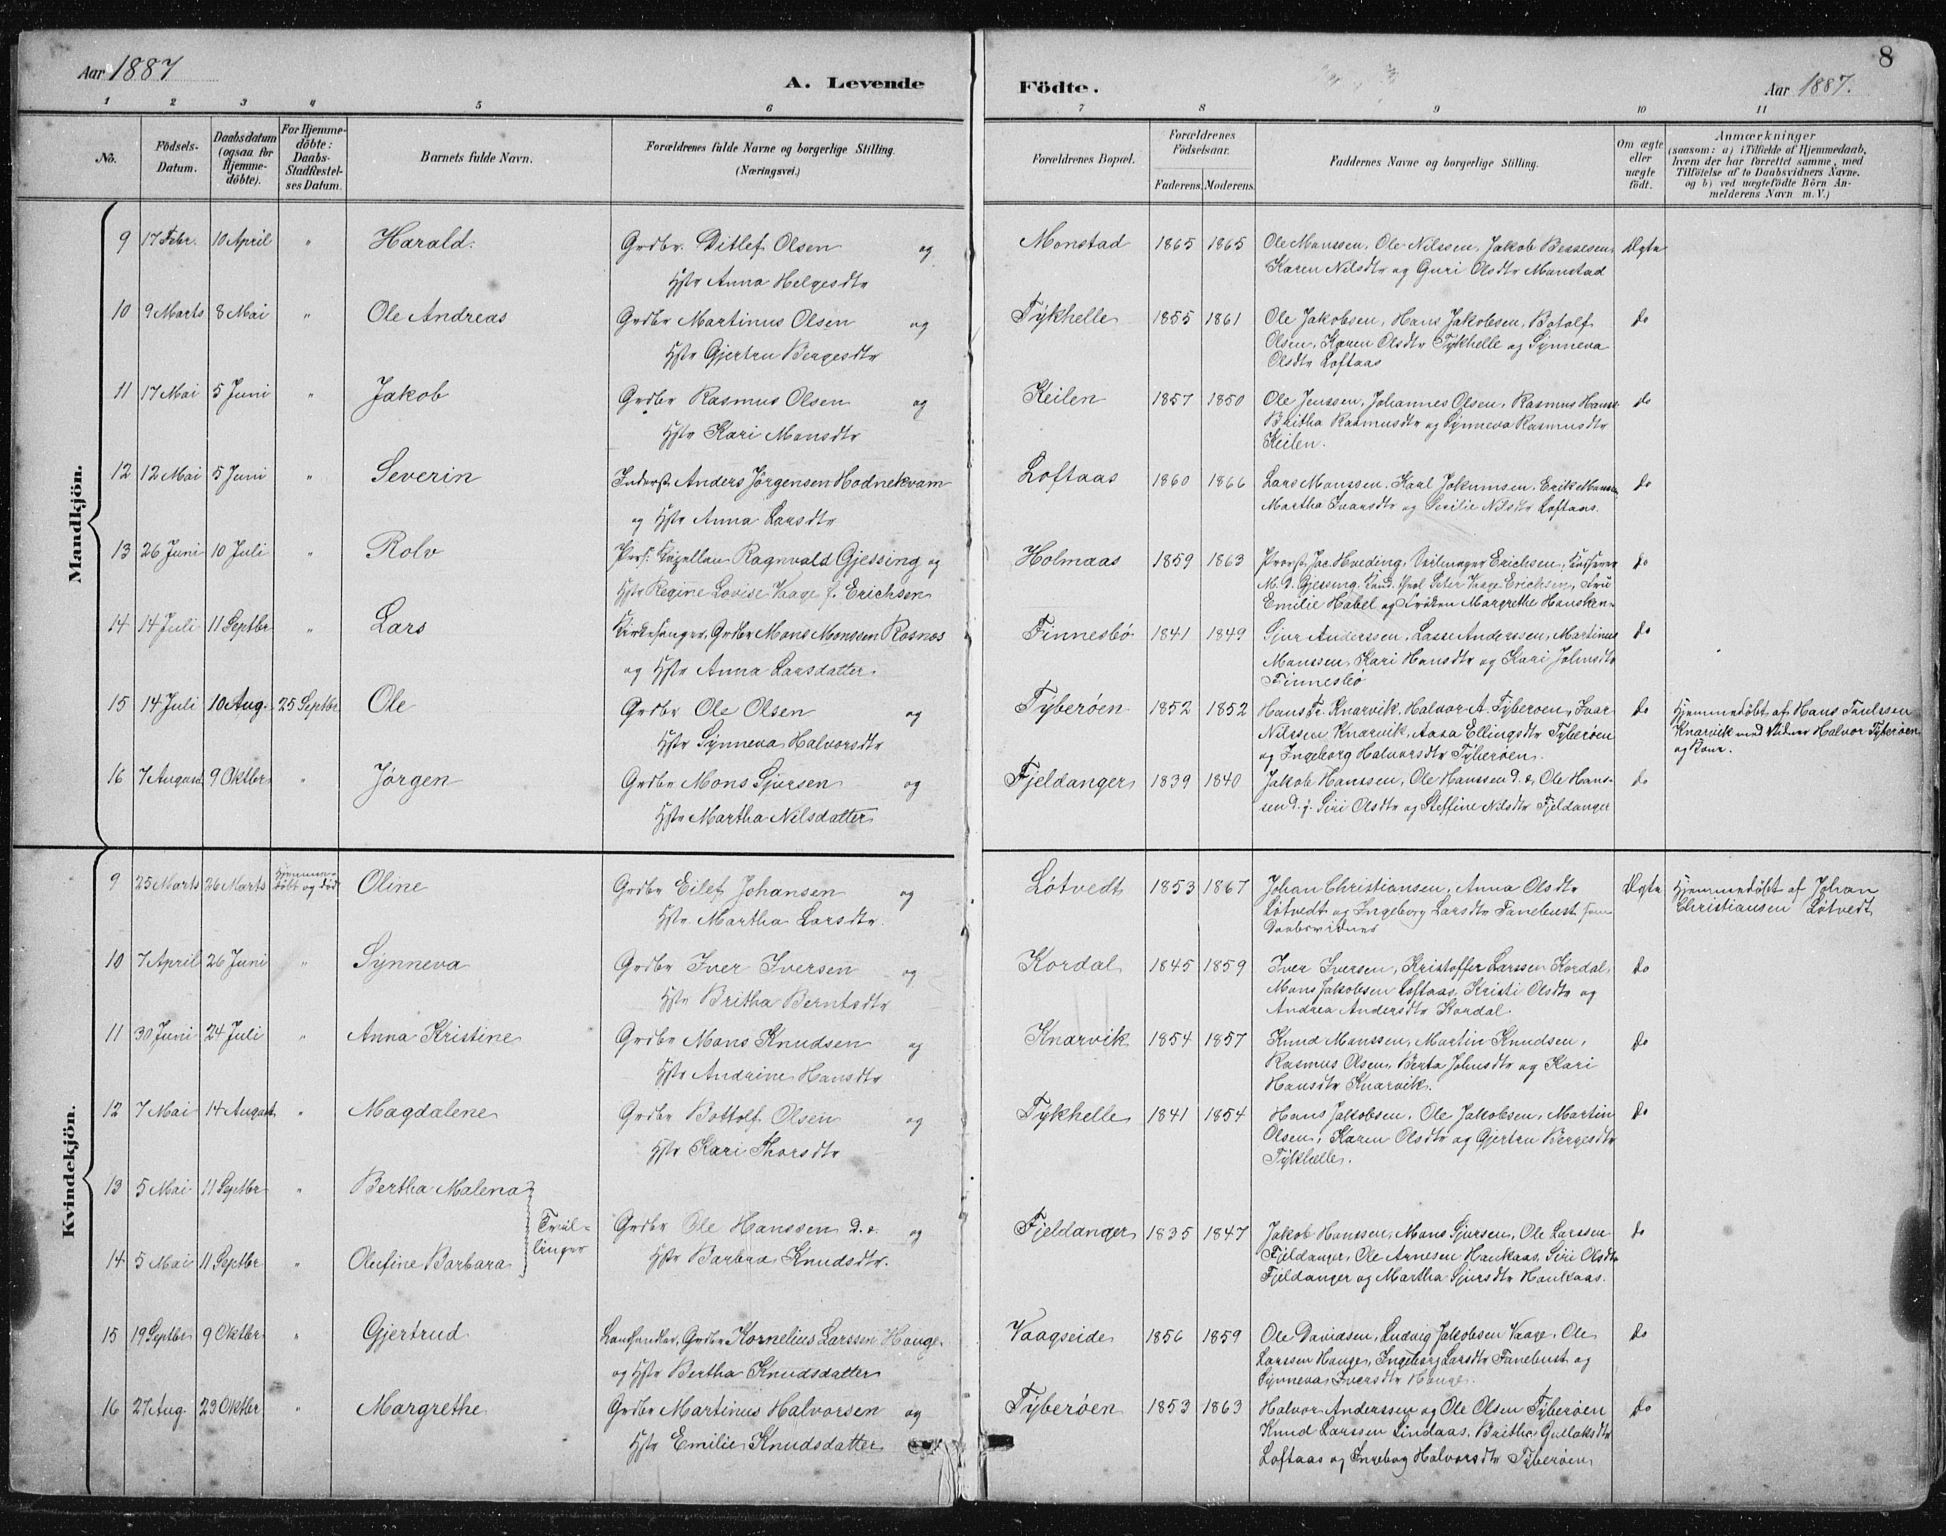 8
Aar 1887
A. Levende
Fødte.
Aar 1887.
1 2 3 4 5 6 7 8 9 10 11
No.
Fødsels-Datum.
Daabsdatum (ogsaa for Hjemmedøbte).
For Hjemmedøbte: Daabs-Stadfæstelses Datum.
Barnets fulde Navn.
Forældrenes fulde Navne og borgerlige Stilling.
(Næringsvei.)
Forældrenes Bopæl.
Forældrenes Fødselsaar.
Faderens. Moderens.
Faddernes Navne og borgerlige Stilling.
Om ægte eller uægte født.
Anmærkninger
(saasom: a) i Tilfælde af Hjemmedaab,
hvem der har forrettet samme, med
Tilføielse af to Daabsvidners Navne.
og b) ved uægtefødte Børn An-
melderens Navn m. V.)
Mandkjön.
9 17 Febr. 10 April " Harald. Grdbr. Ditlef Olsen og Monstad 1865 1865 Ole Monssen, Ole Nilssen, Jakob Bessesen, Ægte
Hstr Anna Helgesdtr Karen Nilsdtr og Guri Olsdtr Monstad
10 9 Marts 8 Mai " Ole Andreas Grdbr Martinus Olsen og Tykhelle 1855 1861 Ole Jakobsen, Hans Jakobsen, Botolf do
Hstr Gjertru Bergesdtr Olsen, Karen Olsdtr Tykhelle og Synneva
Olsdtr Loftaas
11 17 Mai 5 Juni " Jakob Grdbr Rasmus Olsen og Keilen 1857 1850 Ole Jenssen, Johannes Olsen, Rasmus Hanss. do
Hstr Kari Monsdtr Britha Rasmusdtr og Synneva Rasmusdtr
Keilen.
12 12 Mai 5 Juni " Severin Inderst Anders Jørgensen Hodnekvam Loftaas 1860 1866 Lars Monssen, Karl Joakumsen, Erik Monsen, do
og Hstr Anna Larsdtr Martha Ivarsdtr og Serilie Nilsdtr Loftaas.
13 26 Juni 10 Juli " Rolv Pers. Kapellan Ragnvald Gjessing og Holmaas 1859 1863 Provst Jac. Hveding, Erichsen, do
Hstr Regine Lovise Vaage f. Erichsen M. D. Gjessing, Peter Vaage Erichsen, Fru
Emilie Habel og Frøken Margrethe
14 14 Juli 11 Septbr " Lars Kirkesanger, Grdbr Mons Monssen Rosnes Finnesbø 1841 1849 Sjur Anderssen, Lasse Anderssen, Martinus do
og Hstr Anna Larsdatter Monssen, Kari Hansdtr og Kari Johnsdtr
Finnesbø
15 14 Juli 10 Aug. 25 Septbr Ole Grdbr Ole Olsen og Tyberøen 1852 1852 Hans Tr. Knarvik, Halvor A. Tyberøen, Ivar do Hjemmedøbt af Hans Taulssen
Hstr Synneva Halvorsdtr Nilssen Knarvik, Aasa Ellingsdtr Tyberøen Knarvik med Vidner Halvor Tyberøen
og Ingeborg Halvorsdtr Tyberøen. og Kone.
16 7 August 9 Oktbr " Jørgen Grdbr Mons Sjursen og Fjeldanger 1839 1840 Jakob Hanssen, Ole Hanssen d. e, Ole Hans- do
Hstr Martha Nilsdatter sen d. y. Siri Olsdtr og Steffine Nilsdtr Fjeldanger
Kvindekjön.
9 25 Marts 26 Marts Hjemmedøbt og død Oline Grdbr Eilef Johansen og Løtvedt 1853 1867 Johan Christiansen, Anna Olsdtr Ægte Hjemmedøbt af Johan
Hstr Martha Larsdtr. Løtvedt og Ingeborg Larsdtr Fanebust som Christiansen Løtvedt
Daabsvidner
10 7 April 26 Juni " Synneva Grdbr Iver Iversen og Kordal 1845 1859 Iver Iversen, Kristoffer Larssen Kordal, do
Hstr Britha Berntsdtr Mons Jakobsen Loftaas, Kristi Olsdtr og
Andrea Andersdtr Kordal.
11 30 Juni 24 Juli " Anna Kristine Grdbr Mons Knudsen og Knarvik 1854 1857 Knud Monssen, Martin Knudsen, do
Hstr Andrine Hansdtr Rasmus Olsen, Berta Johnsdtr og Kari
Hansdtr Knarvik.
12 7 Mai 14 August " Magdalene Grdbr Bottolf Olsen og Tykhelle 1841 1854 Hans Jakobsen, Ole Jakobsen, Martin do
Hstr Kari Thorsdtr Olsen, Karen Olsdtr og Gjertru Bergesdtr
Tykhelle.
13 5 Mai 11 Septbr " Bertha Malena
Tvillinger Grdbr Ole Hanssen d.e. og Fjeldanger 1835 1847 Jakob Hanssen, Mons Sjursen, Ole Larssen do
14 5 Mai 11 Septbr " Olufine Barbara Hstr Barbra Knudsdtr. Fjeldanger, Ole Arnesen Haukaas, Siri Olsdtr
Fjeldanger og Martha Sjursdtr Haukaas.
15 19 Septbr 9 Oktbr " Gjertrud Landhandler, Grdbr Kornelius Larssen Hauge Vaagseide 1856 1859 Ole Davidsen, Ludvig Jakobsen Vaage, Ole do
og Hstr Bertha Knudsdatter Larssen Hauge, Ingeborg Larsdtr Fanebust og
Synneva Iversdtr Hauge.
16 27 Aug. 23 Oktbr " Margrethe Grdbr Martinus Halvorsen og Tyberøen 1853 1863 Halvor Anderssen og Ole Olsen Tyberøen do
Hstr Emilie Knudsdatter Knud Larssen Lindaas, Britha Gullaksdtr
Loftaas og Ingebog Halvorsdtr Tyberøen